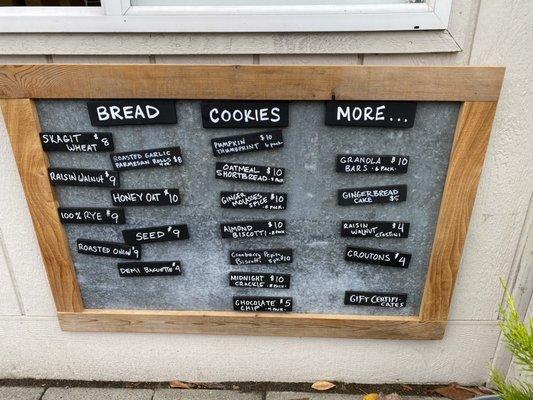 BREAD
SKAGIT $8
WHEAT
ROASTED GARLIC $8
PARMESAN ROLLS
RAISIN WALNUT $9
HONEY OAT $10
100% RYE $9
SEED $9
ROASTED ONION $9
DEMI BAGUETTE $4
COOKIES
PUMPKIN $10
THUMBPRINT 6 PACK
OATMEAL $10
SHORTBREAD
GINGER $10
MOLASSES SPICE
ALMOND $10
BISCOTTI
CRANBERRY $10
BISCOTTI
MIDNIGHT $10
CRACKLE
CHOCOLATE $5
CHIP
MORE...
GRANOLA $10
BARS - 6 PACK
GINGERBREAD
CAKE $5
RAISIN $4
WALNUT CROSTINI
CROUTONS $4
GIFT CERTIFI-
CATES